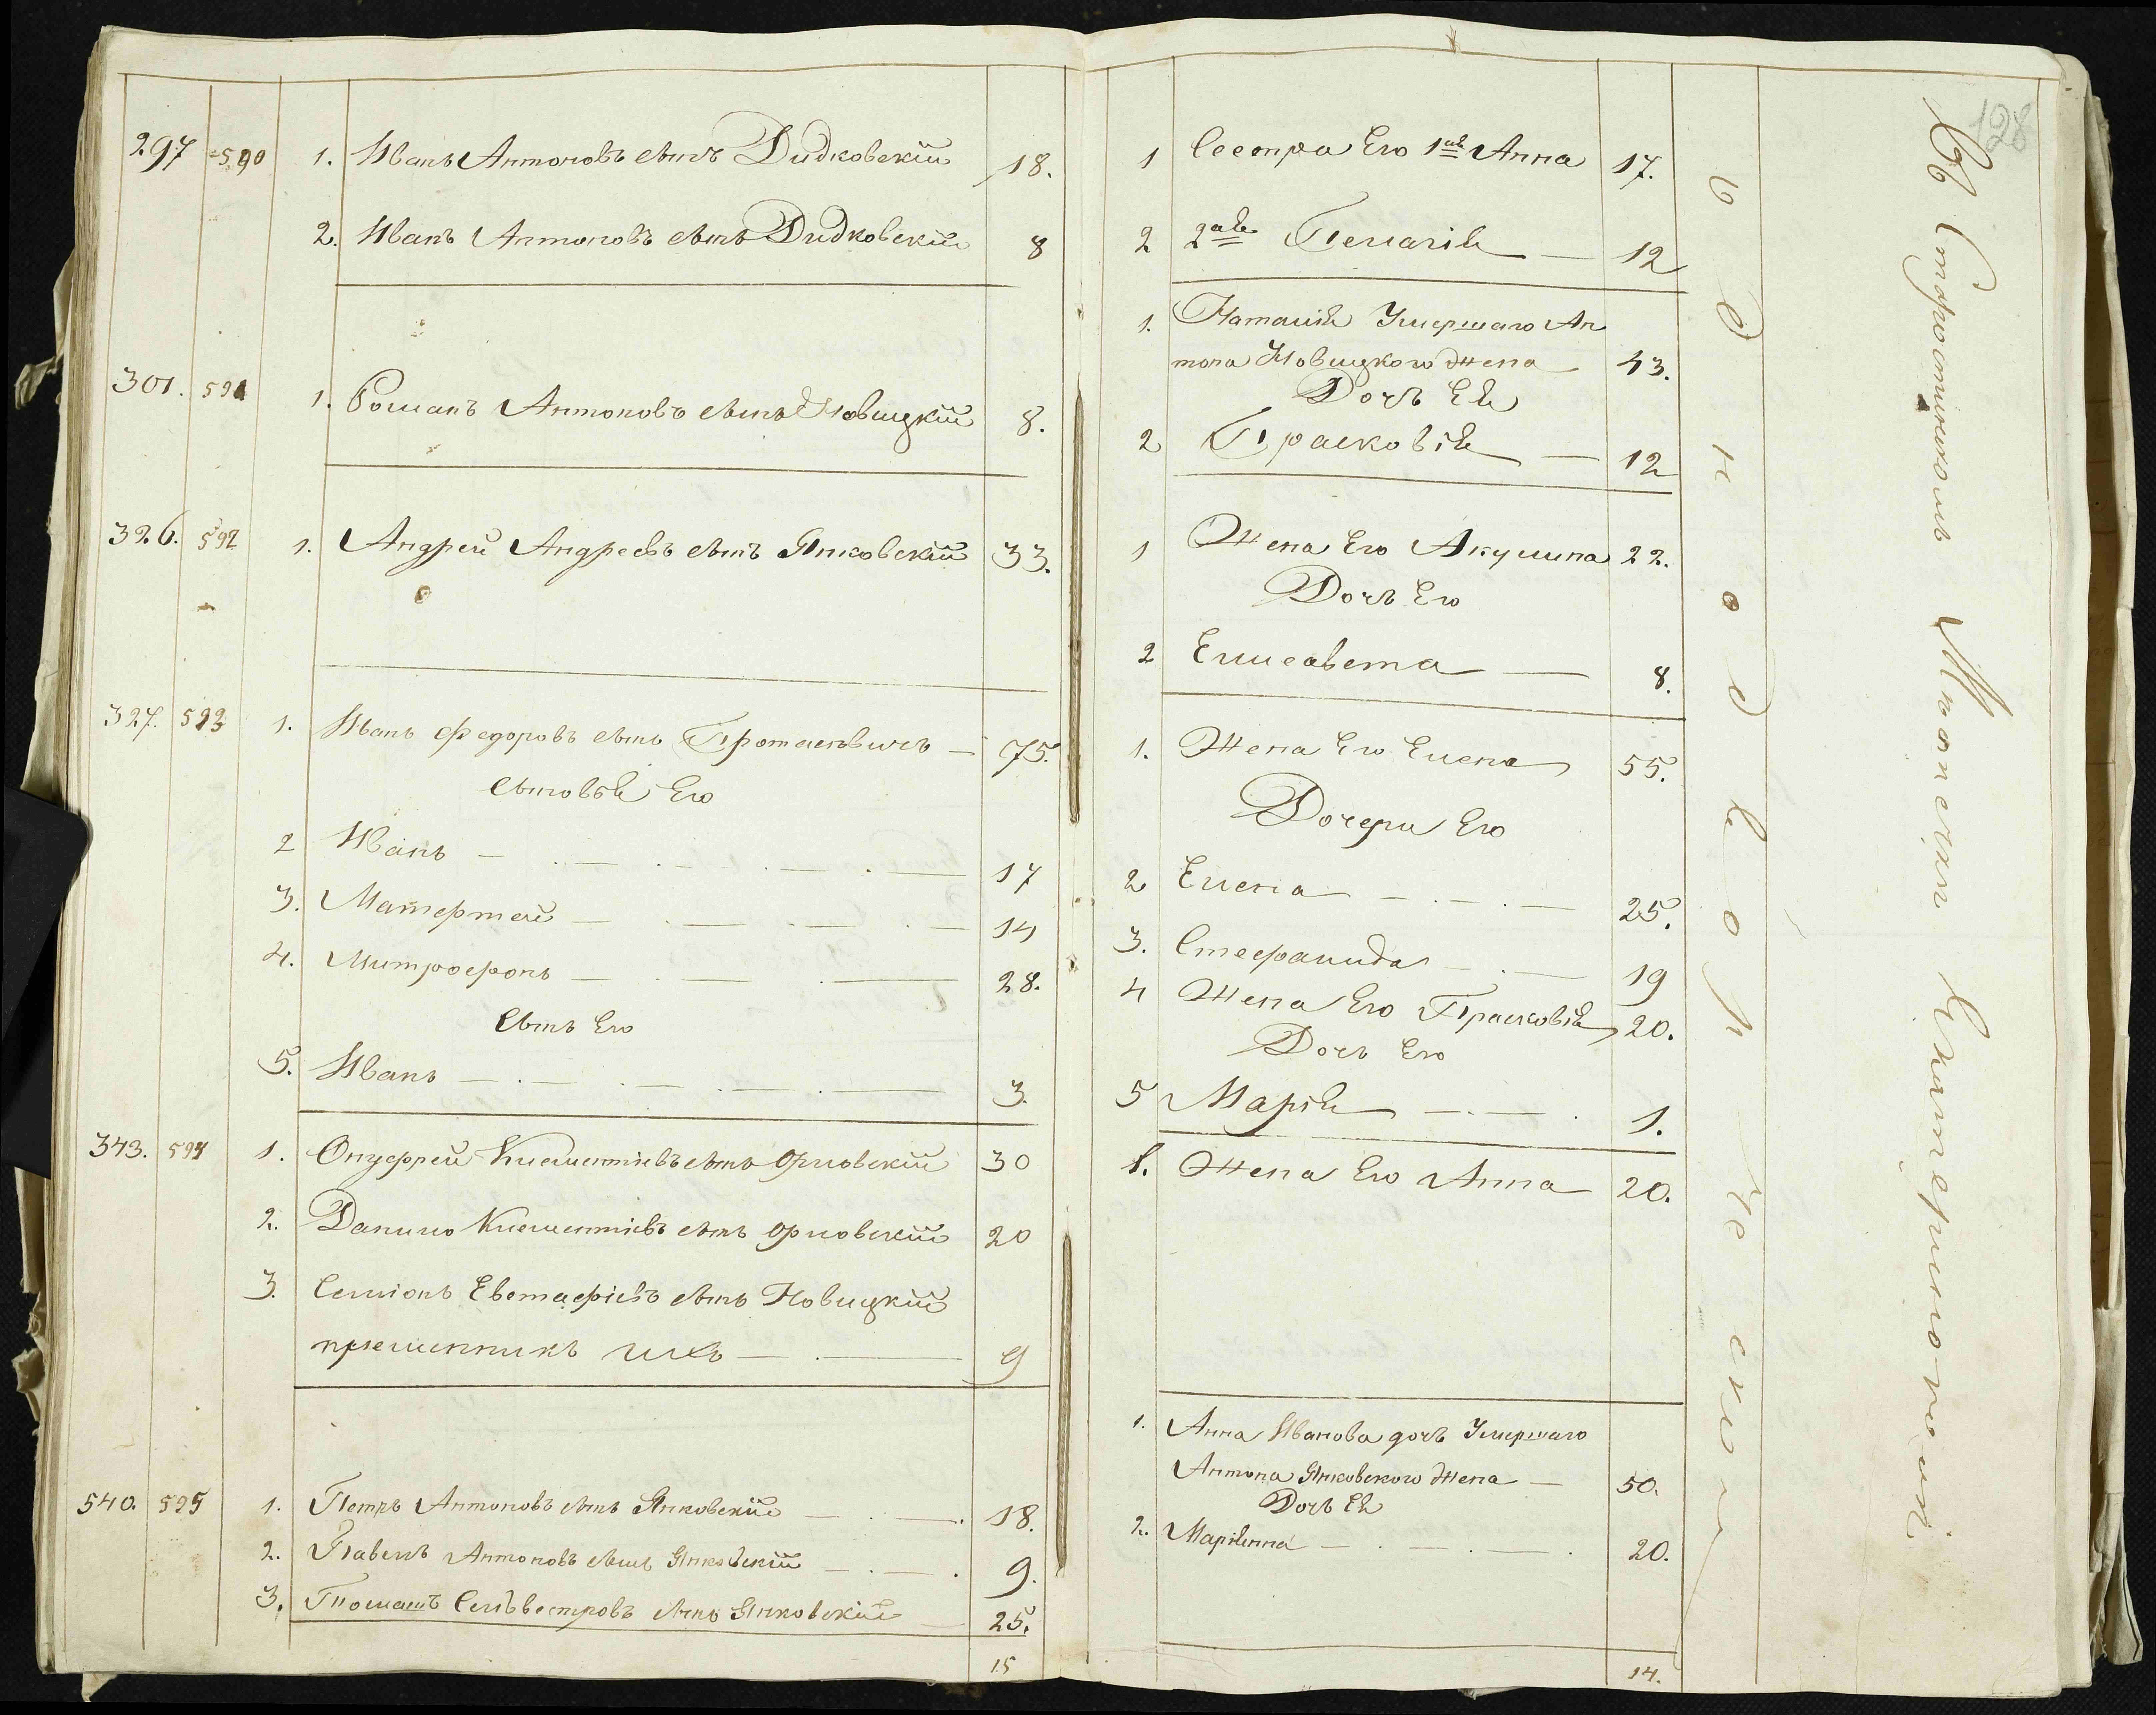 297 590 1. Иванъ Антоновъ сынъ Дидковскiй 18.
2. Иванъ Антоновъ сынъ Дидковскiй 8
301. 591 1. Романъ Антоновъ сынъ Новицкiй 8.
326. 592 1. Андрей Андреевъ сынъ Янковскiй 33.
327. 593 1. Иванъ Федоровъ сынъ Протасевичъ 75.
сыновья Его
2 Иванъ 17
3. Матерней 14
4. Митрофонъ 28.
сынъ Его
5. Иванъ 3.
343. 594 1. Онуфрей Клементiевъ сынъ Орловскiй 30
2. Данило Клементiевъ сынъ Орловскiй 20
3. Семiонъ Евстафiевъ сынъ Новицкiй
племенникъ ихъ 9
540. 595 1. Петръ Антоновъ сынъ Янковскiй 18.
2. Павелъ Антоновъ сынъ Янковскiй 9.
3. Томашъ Сельвестровъ сынъ Янковскiй 25.
15
128
1 Сестра Его 1ая Анна 17.
2 2ая Пелагiя 12
1. Наталiя Умершаго Ан
тона Новицкого жена 43.
Дочь Ея
2 Прасковiя 12
1 Жена Его Акулина 22.
Дочь Его
2 Елисавета 8.
1. Жена Его Елена 55.
Дочери Его
2 Елена 25.
3. Стефанида 19
4 Жена Его Прасковiя 20.
Дочь Его
5 Марiя 1.
1. Жена Его Анна 20.
1. Анна Иванова дочь Умершаго
Антона Янковского жена 50.
Дочь Ея
2. Марiянна 20.
14.
однодворческои
Въ Старостинскомъ